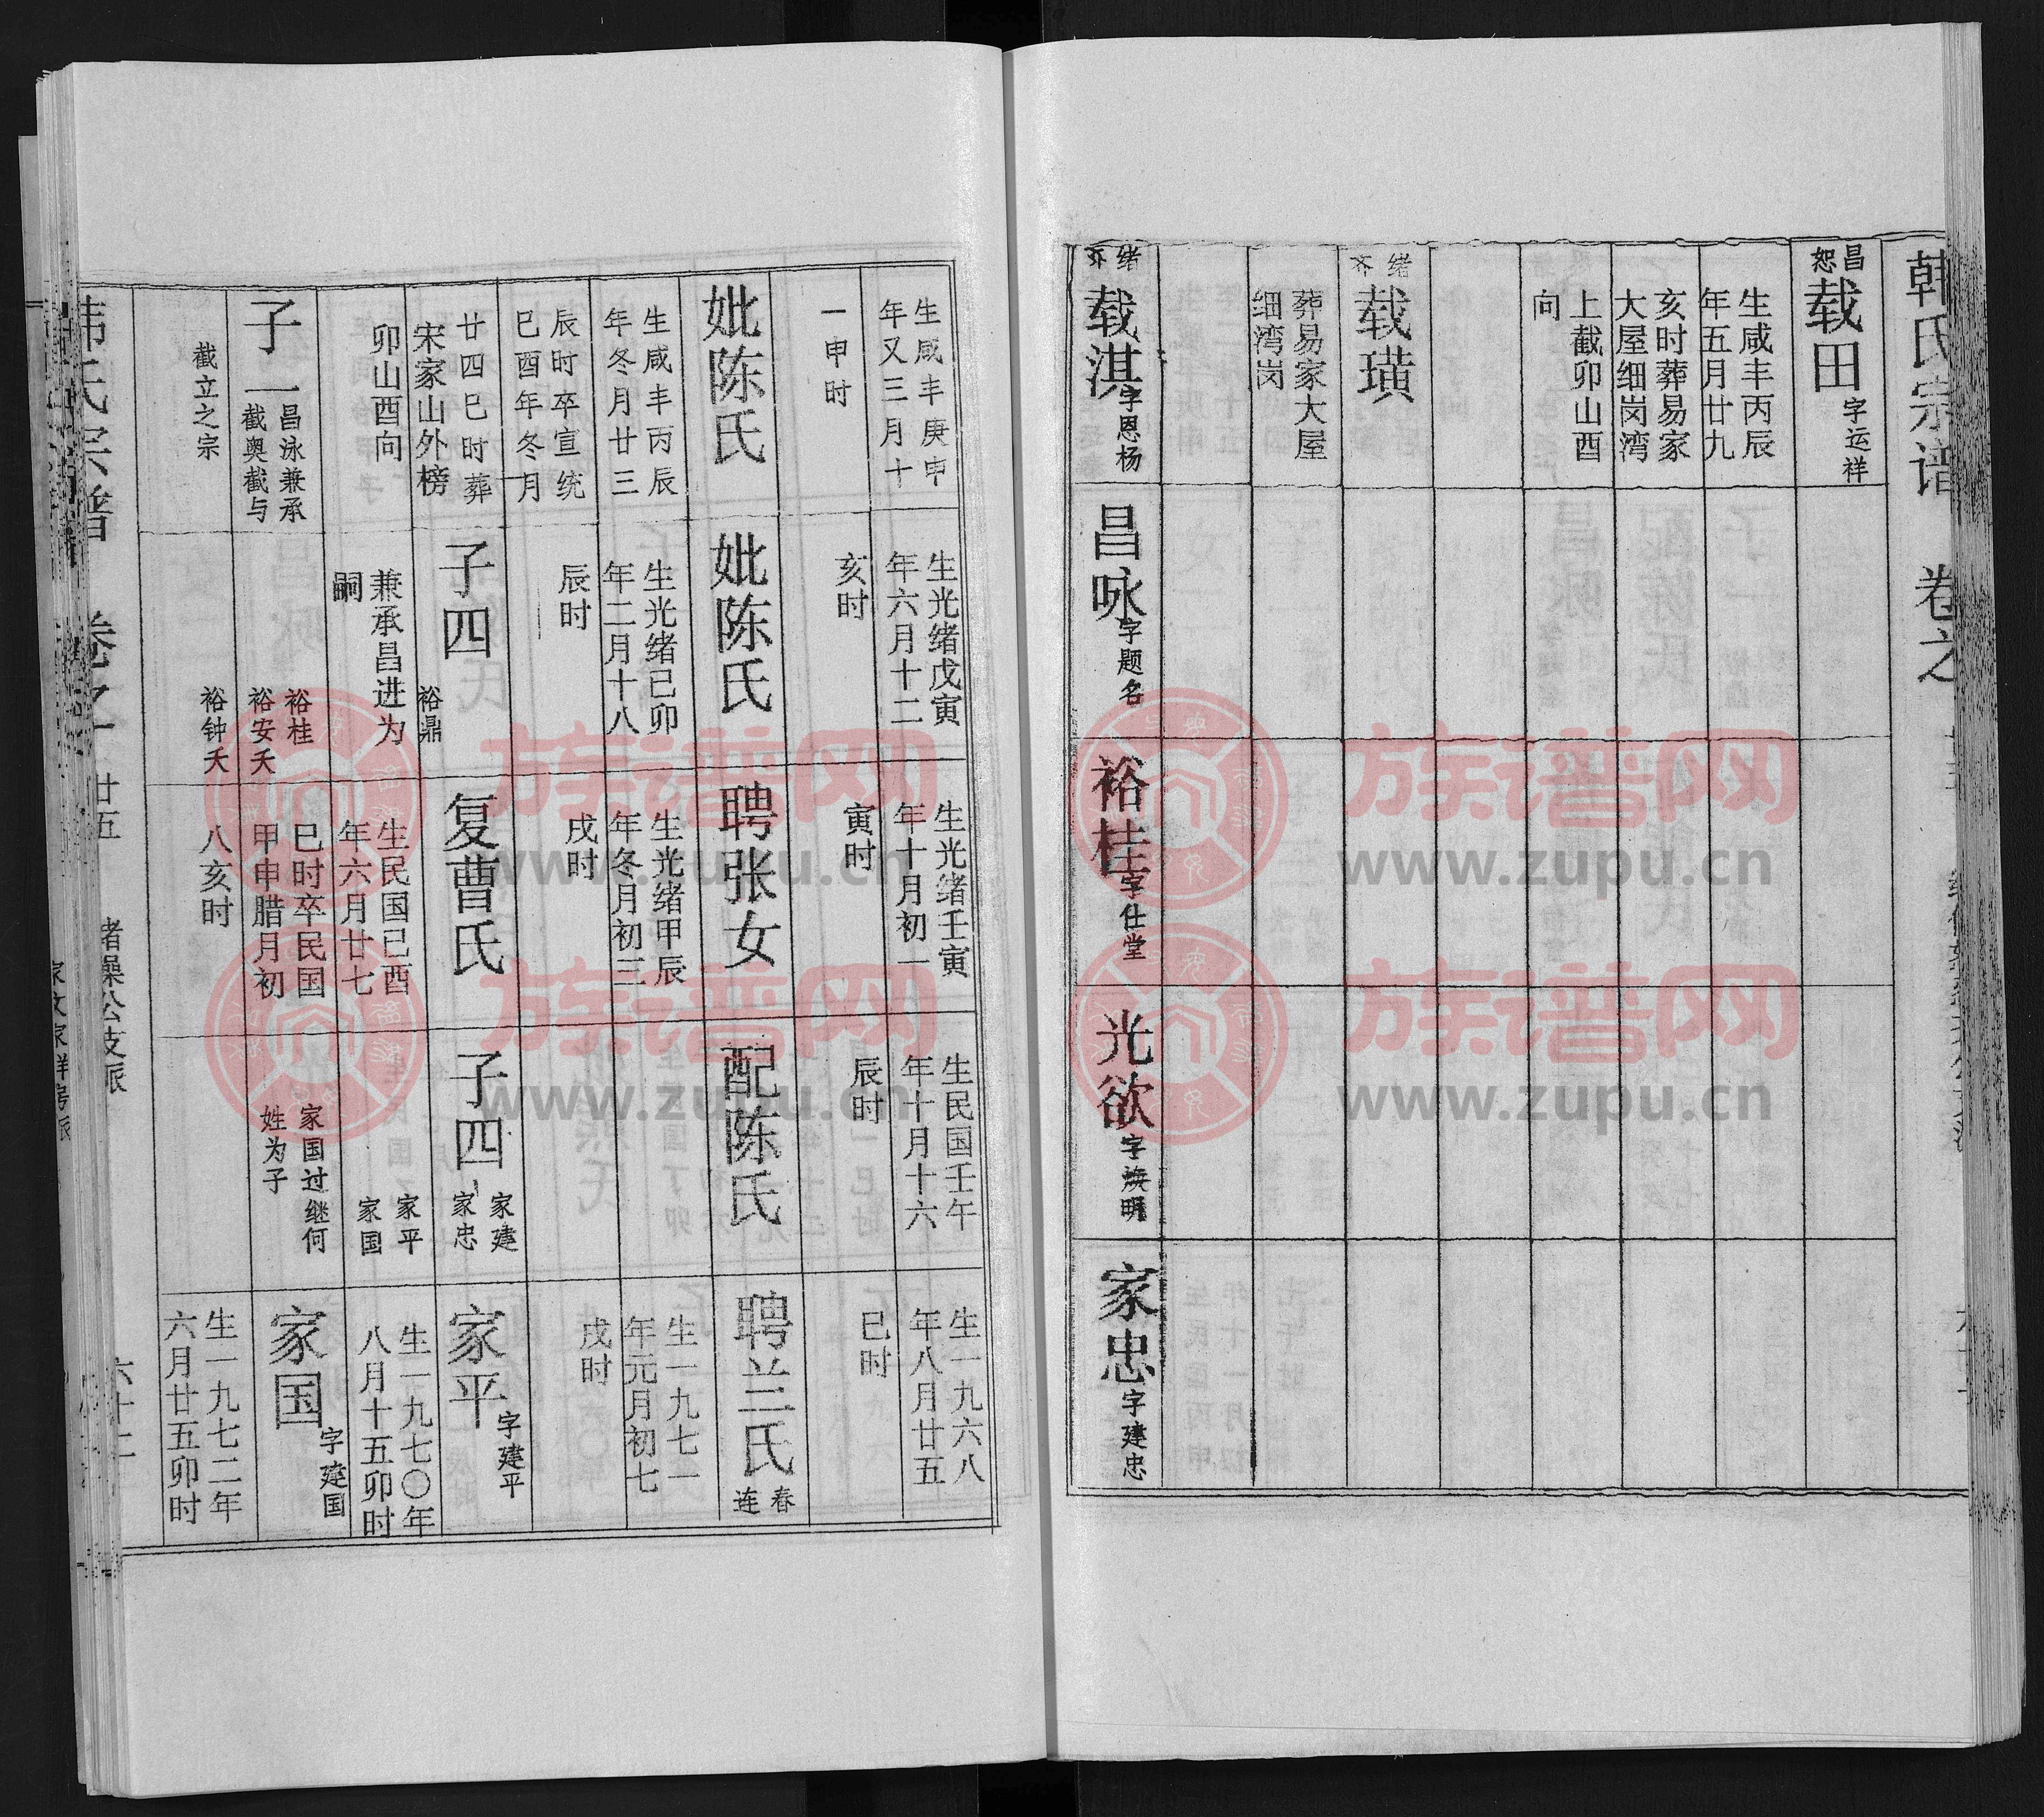 韩氏宗谱 卷之
昌恕 载田 字运祥
生咸丰丙辰
年五月廿九
亥时葬易家
大屋细岗湾
上截卯山酉
向
绪 载璜
葬易家大屋
细湾岗
绪 载淇 字恩杨
昌咏 字题名
裕桂 字仕堂
光欲 字焕明
家忠 字建忠
生咸丰庚申
年又三月十
一申时
妣陈氏
生咸丰丙辰
年冬月廿三
辰时卒宣统
巳酉年冬月
廿四巳时葬
宋家山外榜
卯山酉向
子一
昌泳兼承
截奥截与
截立之宗
生光绪戊寅
年六月十二
亥时
妣陈氏
生光绪己卯
年二月十八
辰时
子四
裕鼎
兼承昌进为
嗣
裕桂
裕安夭
裕钟夭
生光绪壬寅
年十月初一
寅时
聘张女
生光绪甲辰
年冬月初三
戌时
复曹氏
生民国已酉
年六月廿七
巳时卒民国
甲申腊月初
八亥时
生民国壬午
年十月十六
辰时
配陈氏
子四
家建
家忠
家平
家国
家国过继何
姓为子
生一九六八
年八月廿五
巳时
聘兰氏
春
连
生一九七一
年元月初七
戌时
家平 字建平
生一九七〇年
八月十五卯时
家国 字建国
生一九七二年
六月廿五卯时
韩氏宗谱 卷之 廿五 绪操公支派 六十二
族谱网
www.zupu.cn
族谱网
www.zupu.cn
族谱网
www.zupu.cn
族谱网
www.zupu.cn